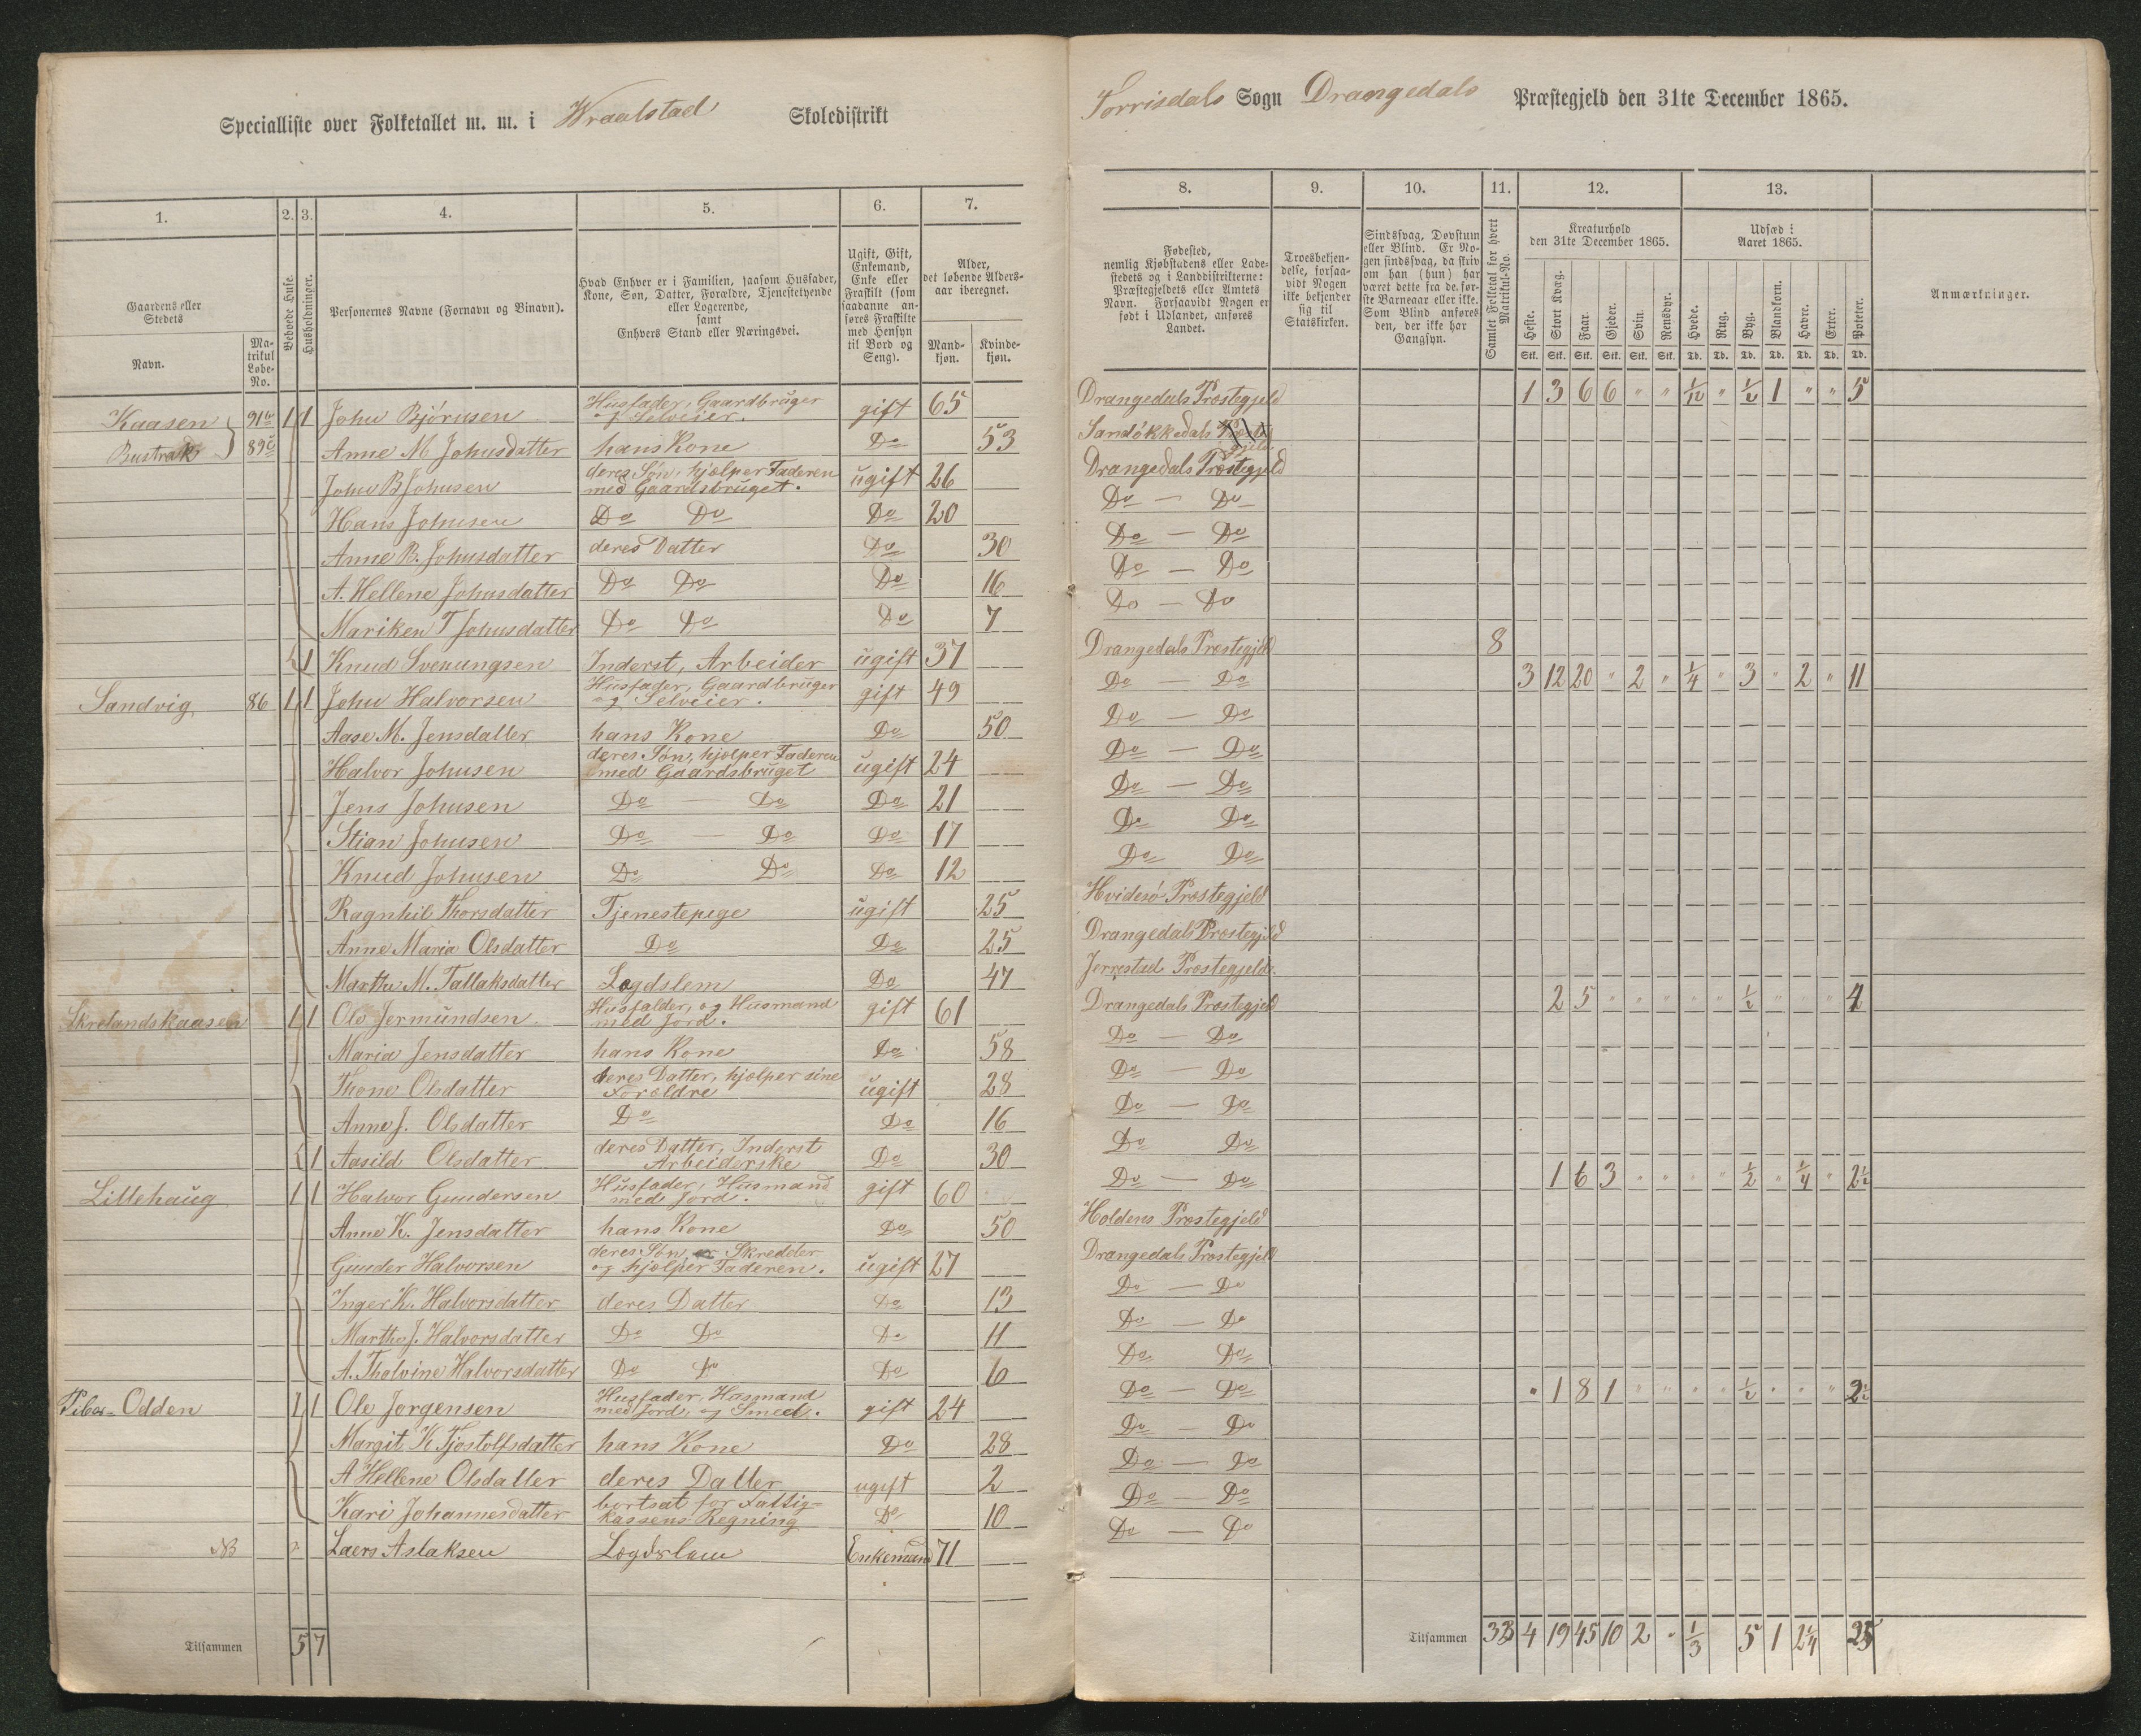 Specialliste over Folketallet m. m. i Wraalstad Skoledistrikt
Torrisdals Sogn Drangedals Præstegjeld den 31te December 1865.
1. 2. 3. 4. 5. 6. 7.
Gaardens eller Stedets
Navn.
Matrikul Løbe-No.
Beboede Huse.
Husholdninger.
Personernes Navne (Fornavn og Binavn).
Hvad Enhver er i Familien, saasom Husfader, Kone, Søn, Datter, Forældre, Tjenestetyende eller Logerende, samt Enhvers Stand eller Næringsvei.
Ugift, Gift, Enkemand, Enke eller Fraskilt (som saadanne anføres Fraskilte med Hensyn til Bord og Seng).
Alder, det løbende Aldersaar iberegnet.
Mandkjøn. Kvindekjøn.
8. 9. 10. 11. 12. 13.
Fødested, nemlig Kjøbstadens eller Ladestedets og i Landdistrikterne: Præstegjeldets eller Amtets Navn. Forsaavidt Nogen er født i Udlandet, anføres Landet.
Troesbekjendelse, forsaavidt Nogen ikke bekjender sig til Statskirken.
Sindssvag, Døvstum eller Blind. Er Nogen sindssvag, da skriv om han (hun) har været dette fra de første Barneaar eller ikke. Som Blind anføres den, der ikke har Gangsyn.
Samlet Folketal for hvert Matrikul-No.
Kreaturhold den 31te December 1865.
Heste. Stort Kvæg. Faar. Gjeder. Svin. Rensdyr.
Stk. Stk. Stk. Stk. Stk. Stk.
Udsæd i Aaret 1865.
Hvede. Rug. Byg. Blandkorn. Havre. Erter. Poteter.
Td. Td. Td. Td. Td. Td. Td.
Anmærkninger.
Kaasen 91 1 1 John Bjørnsen Husfader, Gaardbruger og Selveier. gift 65 Drangedals Præstegjeld 1 3 6 6 " " 1/12 " 1/2 1 " " 5
Bustrak 89 Anne M Johnsdatter hans Kone Do 53 Sandøkkedals
John B Johnsen deres Søn, hjælper Faderen med Gaardsbruget. ugift 26 Drangedals Præstegjeld
Hans Johnsen Do Do Do 20 Do — Do
Anne B. Johnsdatter deres Datter Do 30 Do — Do
A. Hellene Johnsdatter Do Do Do 16 Do — Do
Mariken T Johnsdatter Do Do Do 7 Do — Do
1 Knud Svenungsen Inderst, Arbeider ugift 37 Drangedals Præstegjeld 8
Sandvig 86 1 1 John Halvorsen Husfader, Gaardbruger og Selveier. gift 49 Do — Do 3 12 20 " 2 " 1/4 " 3 " 2 " 11
Aase M. Jensdatter hans Kone Do 50 Do — Do
Halvor Johnsen deres Søn, hjælper Faderen med Gaardsbruget ugift 24 Do — Do
Jens Johnsen Do — Do Do 21 Do — Do
Stian Johnsen Do — Do Do 17 Do Do
Knud Johnsen Do Do Do 12 Do Do
Ragnhil Thorsdatter Tjenestepige ugift 25 Hvidesø Præstegjeld
Anne Maria Olsdatter Do Do 25 Drangedals Præstegjeld
Marthe M. Tallaksdatter Lægdslem Do 47 Jerrestad Præstegjeld.
Skrelandskaasen 1 1 Ole Jermundsen Husfalder, og Husmand med Jord. gift 61 Drangedals Præstegjeld 2 5 " " " " " 1/2 " " " 4
Maria Jensdatter hans Kone Do 58 Do — Do
Thone Olsdatter deres Datter, hjælper sine Forældre ugift 28 Do — Do
Anne J. Olsdatter Do Do 16 Do — Do
1 Aasild Olsdatter deres Datter, Inderst Arbeiderske Do 30 Do Do
Lillehaug 1 1 Halvor Gundersen Husfader, Husmand med Jord. gift 60 Do — Do 1 6 3 " " " " 1/2 " 1/4 " 2 1/2
Anne K. Jensdatter hans Kone Do 50 Holdens Præstegjeld
Gunder Halvorsen deres Søn, er Skredder og hjælper Faderen. ugift 27 Drangedals Præstegjeld
Inger K. Halvorsdatter deres Datter Do 13 Do — Do
Marthe J. Halvorsdatter Do Do Do 11 Do — Do
A. Tholvine Halvorsdatter Do Do Do 6 Do Do
Odden 1 1 Ole Jørgensen Husfader, Husmand med Jord, og Smed. gift 24 Do — Do " 1 8 1 " " " " 1/2 " " " 2 1/2
Margit K Tjostolfsdatter hans Kone Do 28 Do — Do
A Hellene Olsdatter deres Datter ugift 2 Do — Do
Kari Johannesdatter bortsat for Fattigkassens Regning Do 10 Do — Do
NB Laers Aslaksen Lægdslem Enkemand 71 Do — Do
Tilsammen 5 7
Tilsammen 33 4 19 45 10 2 " 1/3 5 1 2 1/4 25